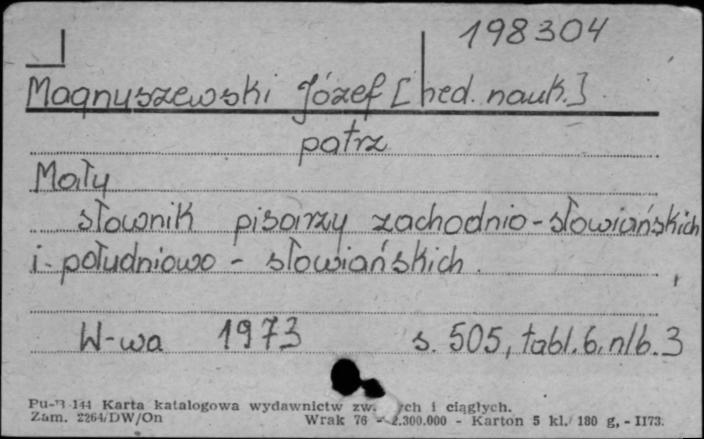 198304
Magnuszewski Józef [red. nauk.]
patrz
Mały
słownik pisarzy zachodnio-słowiańskich
i południowo - słowiańskich.
W-wa 1973 s. 505, tabl. 6, nlb. 3
Pu-B 144 Karta katalogowa wydawnictw ciągłych i
Zam. 2264/DW/On Wrak 76 - 2.300.000 - Karton 5 kl. 180 g, - II73.